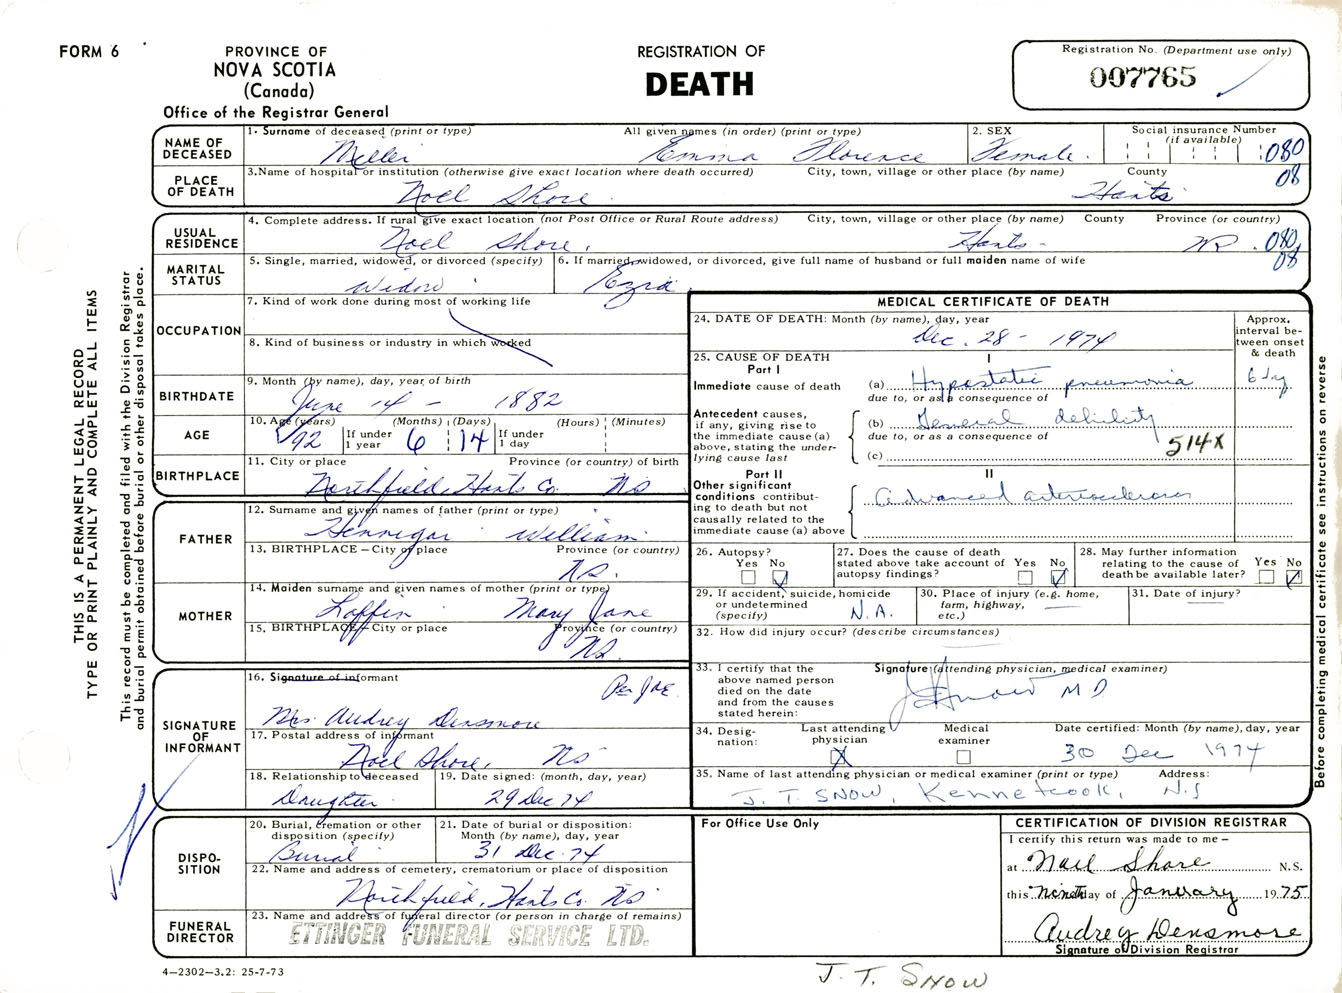 FORM 6
PROVINCE OF
NOVA SCOTIA
(Canada)
Office of the Registrar General
REGISTRATION OF
DEATH
Registration No. (Department use only)
007765
NAME OF DECEASED
1. Surname of deceased (print or type) All given names (in order) (print or type)
Miller Emma Florence
2. SEX
Female.
Social insurance Number
(if available)
080
PLACE OF DEATH
3. Name of hospital or institution (otherwise give exact location where death occurred) City, town, village or other place (by name) County
08
Noel Shore. Hants
USUAL RESIDENCE
4. Complete address. If rural give exact location (not Post Office or Rural Route address) City, town, village or other place (by name) County Province (or country)
Noel Shore. Hants - 080
08
MARITAL STATUS
5. Single, married, widowed, or divorced (specify)
Widow
6. If married, widowed, or divorced, give full name of husband or full maiden name of wife
Ezra.
OCCUPATION
7. Kind of work done during most of working life
8. Kind of business or industry in which worked
BIRTHDATE
9. Month (by name), day, year of birth
June 14 - 1882
AGE
10. Age (years) (Months) (Days) (Hours) (Minutes)
92 If under 1 year 6 14 If under 1 day
BIRTHPLACE
11. City or place Province (or country) of birth
Northfield, Hants Co. NS
FATHER
12. Surname and given names of father (print or type)
Hennigar William
13. BIRTHPLACE – City or place Province (or country)
NS.
MOTHER
14. Maiden surname and given names of mother (print or type)
Laffin Mary Jane
15. BIRTHPLACE – City or place Province (or country)
NS.
SIGNATURE OF INFORMANT
16. Signature of informant
Per
Mrs. Audrey Densmore
17. Postal address of informant
Noel Shore, NS
18. Relationship to deceased
Daughter.
19. Date signed: (month, day, year)
29 Dec 74
DISPO-
SITION
20. Burial, cremation or other
disposition (specify)
Burial
21. Date of burial or disposition:
Month (by name), day, year
31 Dec. 74
22. Name and address of cemetery, crematorium or place of disposition
Northfield, Hants Co. NS
FUNERAL DIRECTOR
23. Name and address of funeral director (or person in charge of remains)
ETTINGER FUNERAL SERVICE LTD.
4–2302–3.2: 25-7-73
MEDICAL CERTIFICATE OF DEATH
24. DATE OF DEATH: Month (by name), day, year
Dec. 28 - 1974
Approx.
interval be-
tween onset
& death
25. CAUSE OF DEATH
Part I
I
Immediate cause of death (a) Hypostatic pneumonia 6 day
due to, or as a consequence of
Antecedent causes,
if any, giving rise to
the immediate cause (a)
above, stating the under-
lying cause last
(b) General debility
due to, or as a consequence of
514X
(c)
Part II
II
Other significant
conditions contribut-
ing to death but not
causally related to the
immediate cause (a) above
Advanced arteriosclerosis
26. Autopsy?
Yes No
27. Does the cause of death
stated above take account of
autopsy findings?
Yes No
28. May further information
relating to the cause of
death be available later?
Yes No
29. If accident, suicide, homicide
or undetermined
(specify)
N.A.
30. Place of injury (e.g. home,
farm, highway,
etc.)
31. Date of injury?
32. How did injury occur? (describe circumstances)
33. I certify that the
above named person
died on the date
and from the causes
stated herein:
Signature (attending physician, medical examiner)
J T Snow MD
34. Desig-
nation:
Last attending
physician
X
Medical
examiner
Date certified: Month (by name), day, year
30 Dec 1974
35. Name of last attending physician or medical examiner (print or type) Address:
J. T. SNOW, Kennetcook, N.S
For Office Use Only
CERTIFICATION OF DIVISION REGISTRAR
I certify this return was made to me –
at Noel Shore N.S.
this Ninth day of January 1975
Audrey Densmore
Signature of Division Registrar
J. T. SNOW
THIS IS A PERMANENT LEGAL RECORD
TYPE OR PRINT PLAINLY AND COMPLETE ALL ITEMS
This record must be completed and filed with the Division Registrar
and burial permit obtained before burial or other disposal takes place.
Before completing medical certificate see instructions on reverse